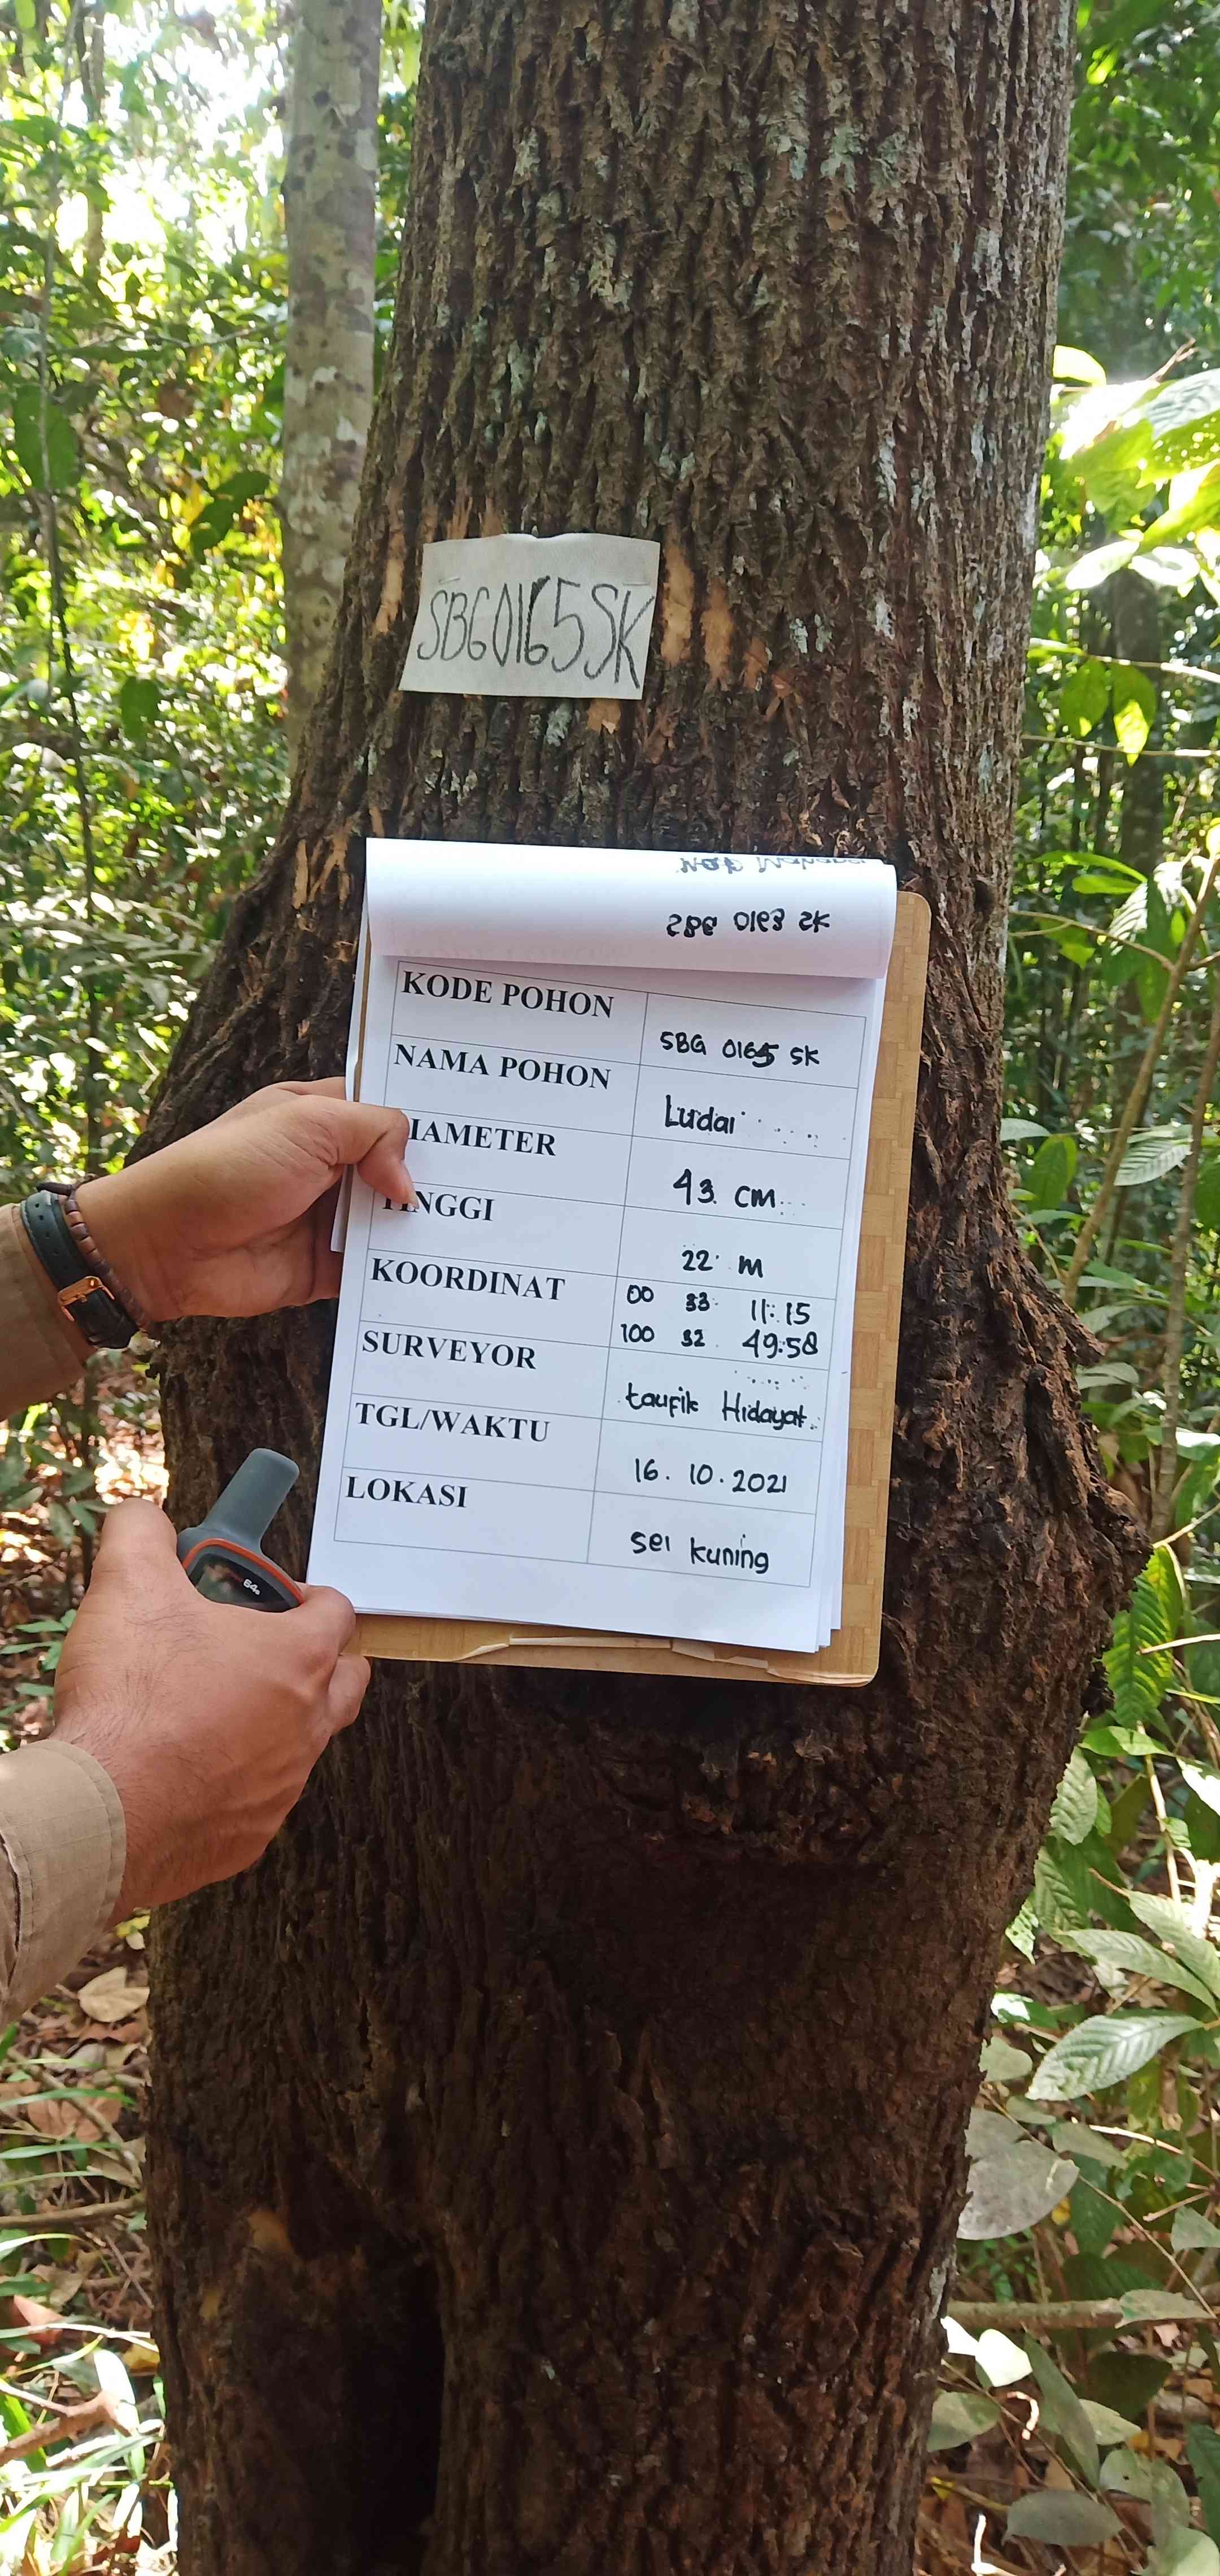 SBG0165SK
SBG 0163 SK
KODE POHON SBG 0165 SK
NAMA POHON Ludai
DIAMETER 43 cm
TINGGI 22 m
KOORDINAT 00 33 11.15
100 32 49.58
SURVEYOR taufik Hidayat
TGL/WAKTU 16.10.2021
LOKASI sei kuning
64s